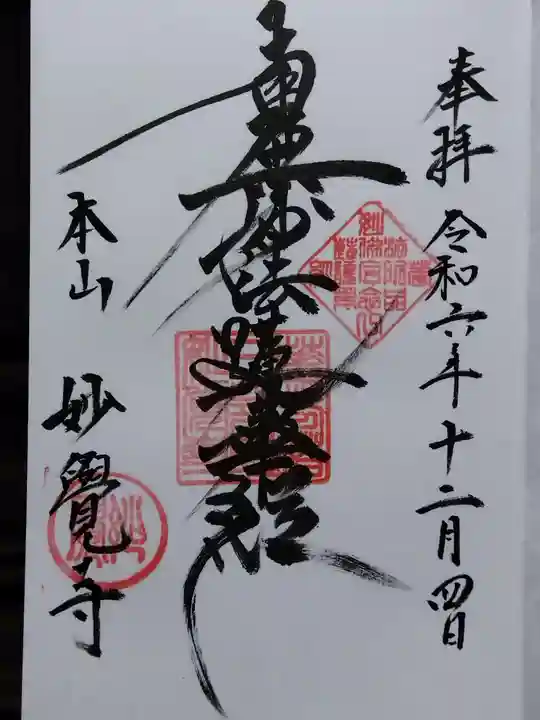 奉拝 令和六年十二月四日
南無妙法蓮華経
本山 妙覺寺